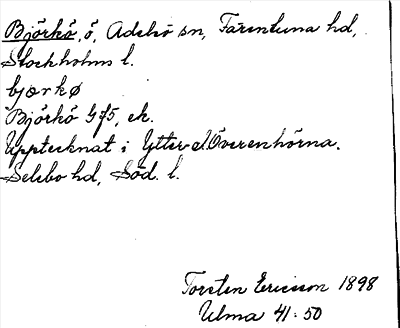 Björkö, ö, Adelsö sn, Färentuna hd,
Stockholms l.
bjærkø
Björkö G45, ek.
Upptecknat i Ytter-el.Överenhörna.
Selebo hd, Söd. l.
Torsten Ericsson 1898
Ulma 41:50